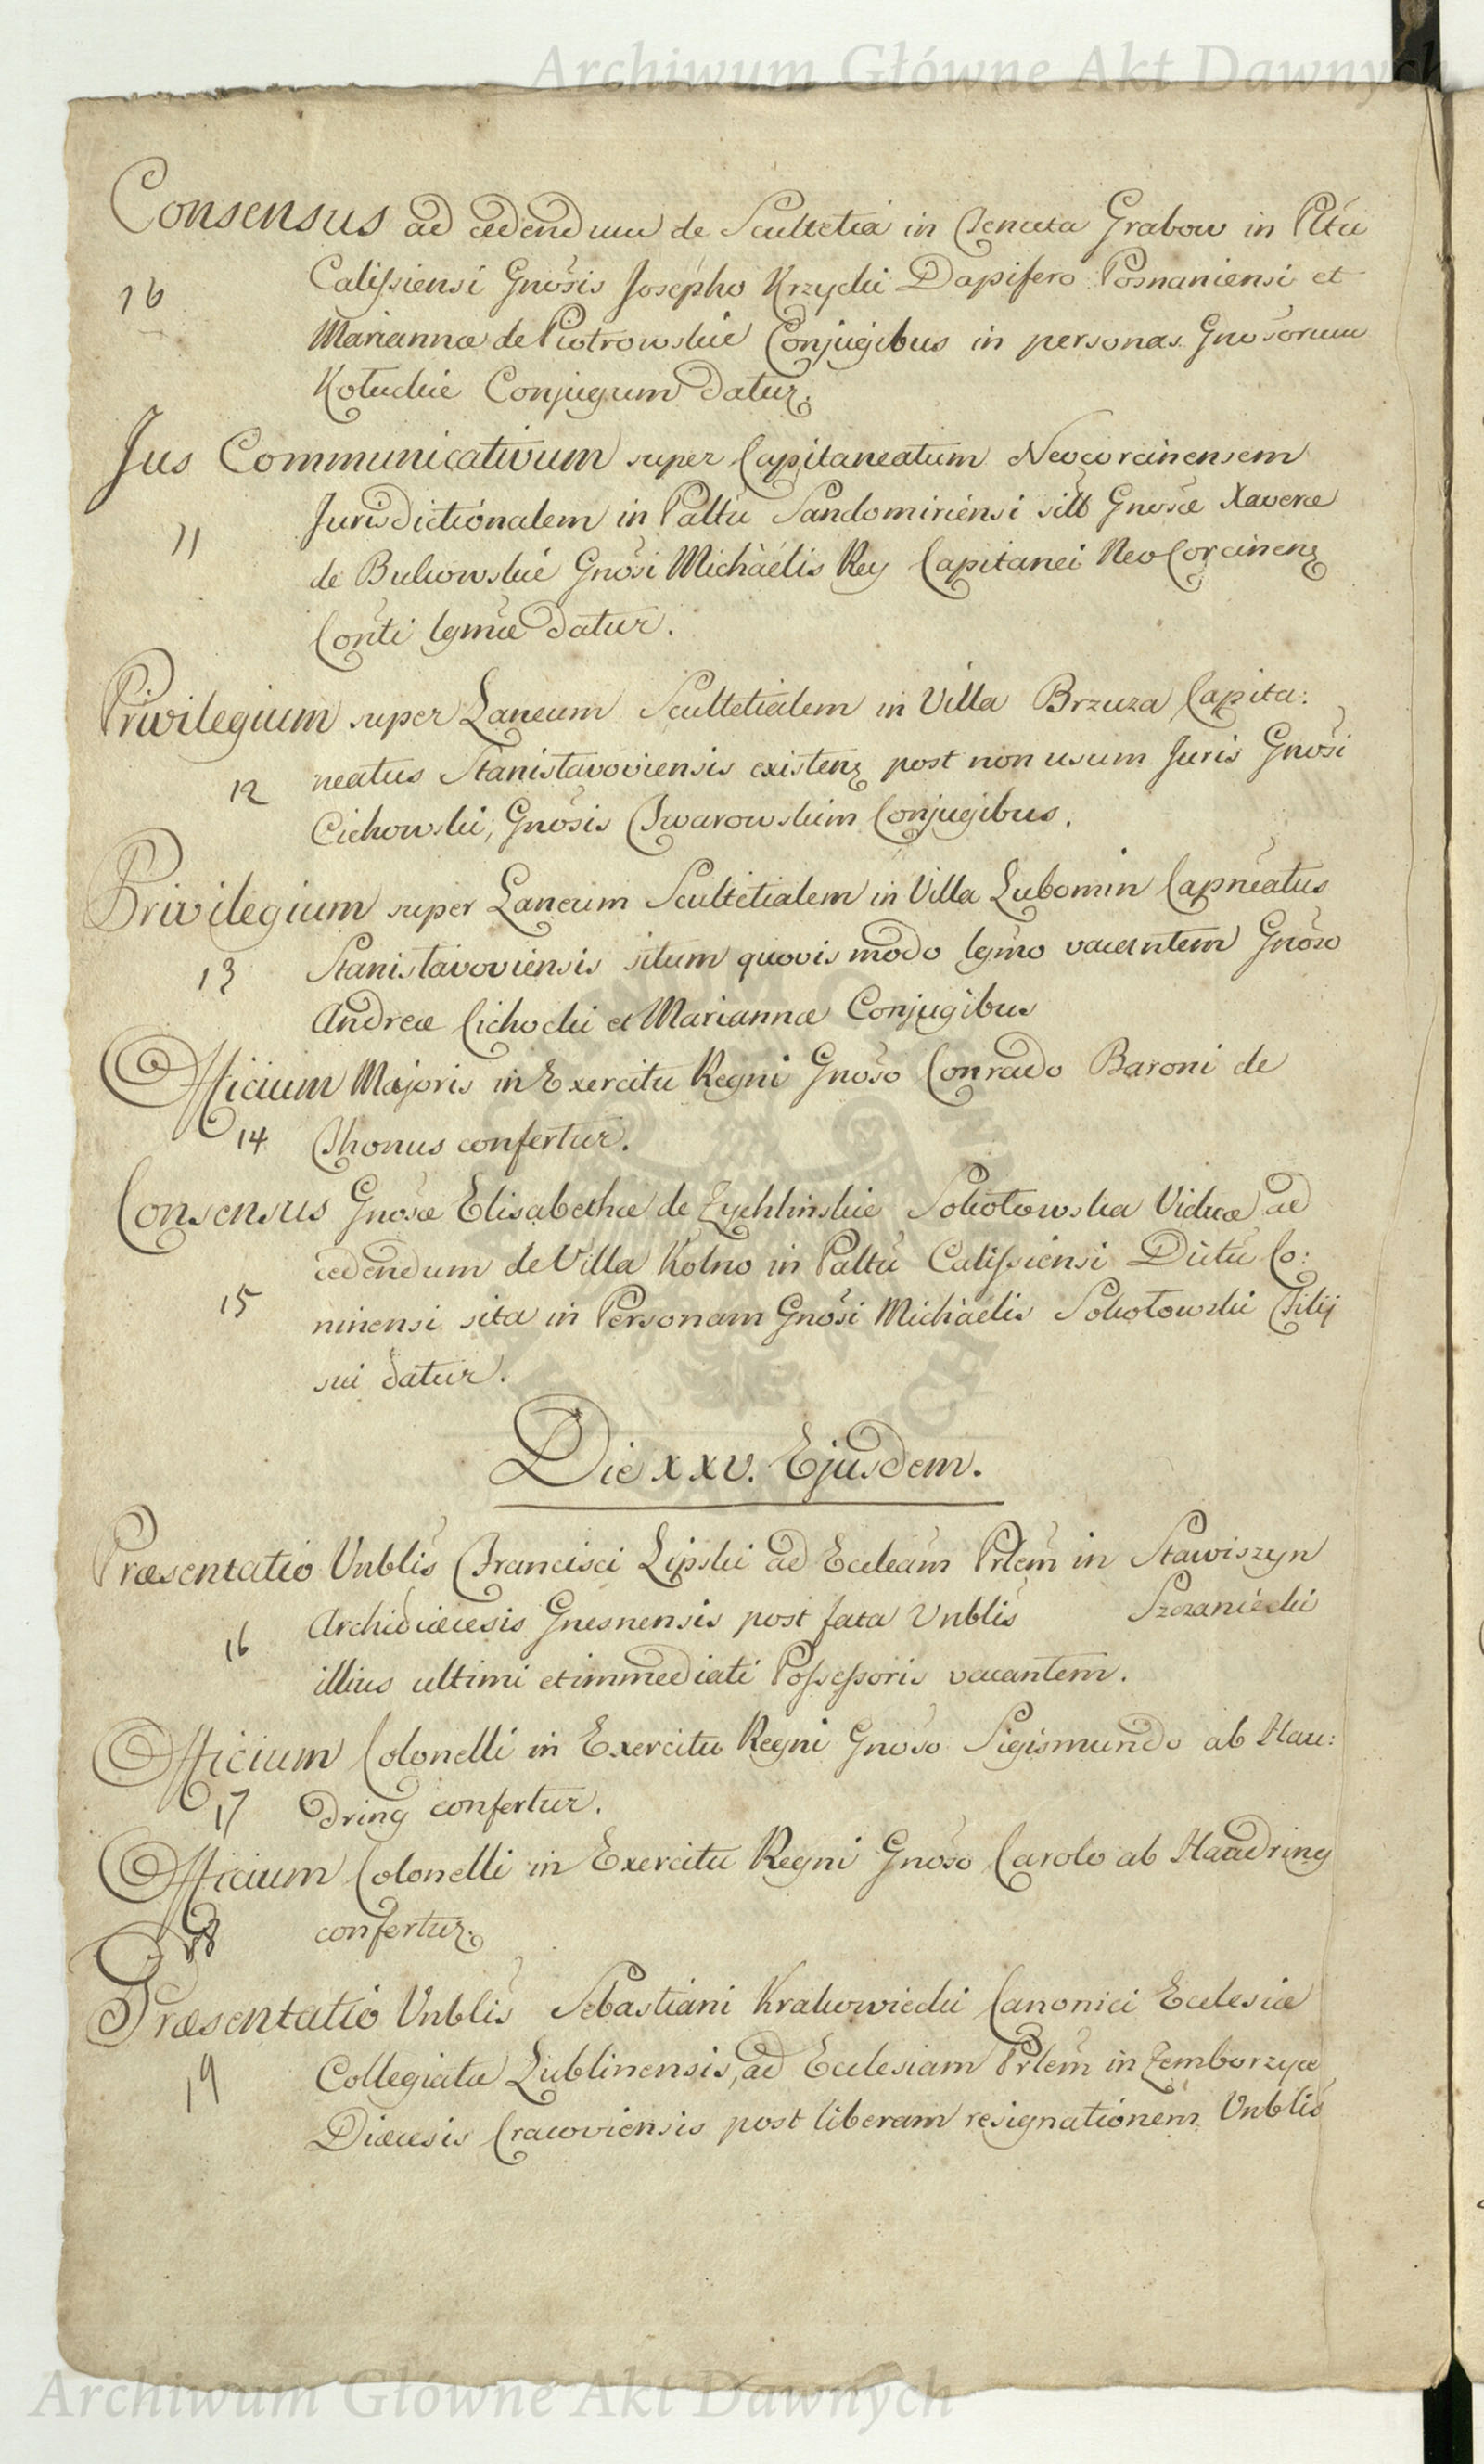 Archiwum Główne Akt Dawnych
Consensus ad cedendum de Scultetia in Tenuta Grabow in Pltu
16 Calissiensi Gnosis Josepho Krzycki Dapifero Posnaniensi et
Mariannæ de Piotrowskie Conjugibus in personas Gnosorum
Kołuckie Conjugum datur.
Jus Communicativum super Capitaneatum Neocorcinensem
11 Jurisdictionalem in Paltu Sandomiriensi sitt Gnosæ Xaveræ
de Bukowskie Gnosi Michaelis Rey Capitanei NeoCorcinen
Conti lgmæ datur.
Privilegium super Laneum Scultetialem in Villa Brzuza Capita:
12 neatus Stanisławoviensis existen post non usum Juris Gnosi
Cichowski, Gnosis Twarowskim Conjugibus.
Privilegium super Laneum Scultetialem in Villa Lubomin Capneatus
13 Stanisławoviensis situm quovis modo lgmo vacantem Gnoso
Andreæ Cichocki et Mariannæ Conjugibus
Officium Majoris in Exercitu Regni Gnoso Conrado Baroni de
14 Thonus confertur.
Consensus Gnosæ Elisabethæ de Zychlinskie Sokołowska Viduæ ad
cedendum de Villa Kolno in Paltu Calissiensi Dittu Co:
15 ninensi sita in Personam Gnosi Michaelis Sokołowski Filij
sui datur.
Die XXV. Ejusdem.
Præsentatio Vnblis Francisci Lipski ad Eccleam Prlem in Stawiszyn
Archidiæcesis Gnesnensis post fata Vnblis Szczaniecki
16 illius ultimi et immediati Possessoris vacantem.
Officium Colonelli in Exercitu Regni Gnoso Sigismundo ab Hau:
17 dring confertur.
Officium Colonelli in Exercitu Regni Gnoso Carolo ab Haudring
18 confertur.
Præsentatio Vnblis Sebastiani Krakowiecki Canonici Ecclesiæ
19 Collegiatæ Lublinensis, ad Ecclesiam Prlem in Zemborzyce
Diæcesis Cracoviensis post liberam resignationem Vnblis
Archiwum Główne Akt Dawnych